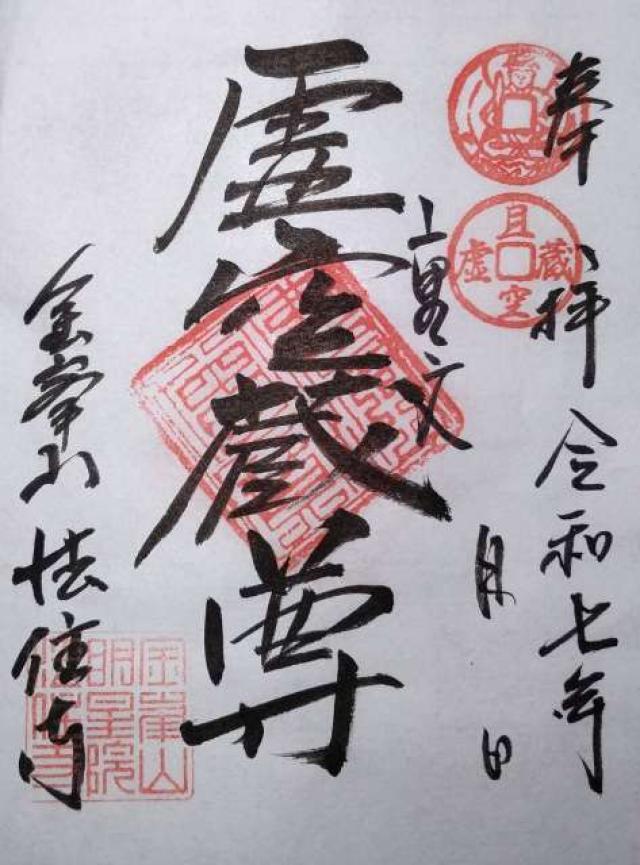 奉拝 令和七年
月 日
且空蔵虚
虚空蔵尊
金峯山 法住寺
金峯山
明星院
法住寺